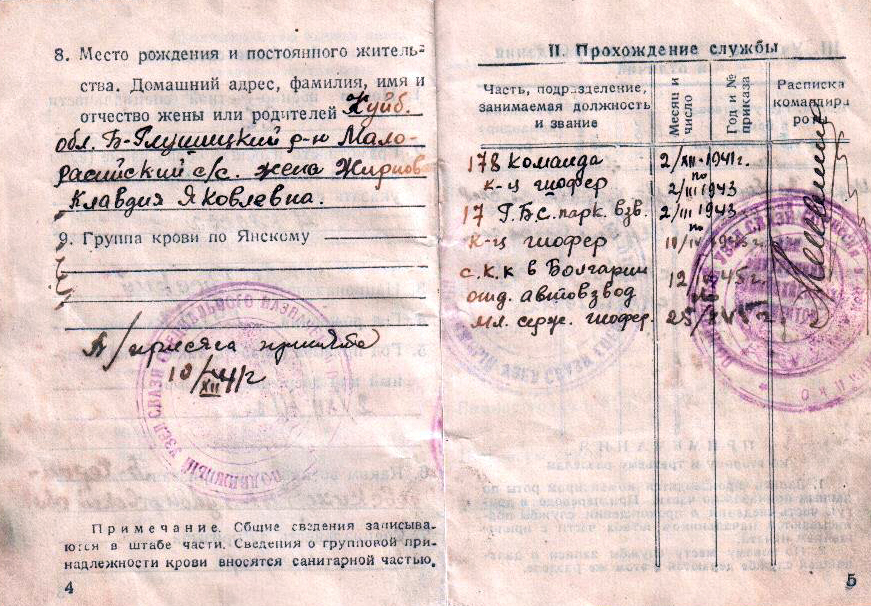 8. Место рождения и постоянного житель-
ства. Домашний адрес, фамилия, имя и
отчество жены или родителей Куйб.
обл. Б-Глушицкий р-н Мало-
расийский с/с. жена Жирнов
Клавдия Яковлевна.
9. Группа крови по Янскому
А/присяга принята
10/XII 41г
Примечание. Общие сведения записыва-
ются в штабе части. Сведения о групповой при-
надлежности крови вносятся санитарной частью.
4
II. Прохождение службы
Часть, подразделение, занимаемая должность и звание
Месяц и число
Год и № приказа
Расписка командира роты
178 команда 2/XII-1941г.
к-ц шофер по 2/III 1943
17 Г.Б.С. парк. взв. 2/III 1943
к-ц шофер по
с.к.к в Болгарии 12 45г
отд. автовзвод
мл. серж. шофер. 25/ 45г
ПОДВИЖНЫЙ УЗЕЛ СВЯЗИ
5